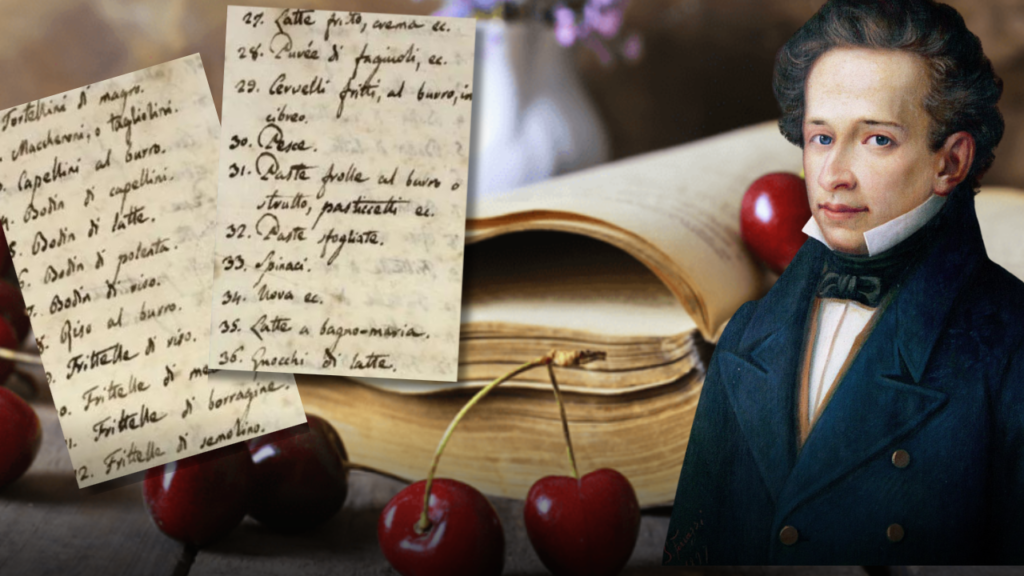 Tortellini di magro.
Maccheroni, o tagliolini.
Capellini al burro.
Bodin di capellini.
5. Bodin di latte.
6. Bodin di polenta.
7. Bodin di riso.
Riso al burro.
Frittelle di riso.
Frittelle di me
Frittelle di borragine.
2. Frittelle di semolino.
27. Latte fritto, crema ec.
28. Purée di fagiuoli, ec.
29. Cervelli fritti, al burro, in
cibreo.
30. Pesce.
31. Paste frolle al burro o
strutto, pasticcetti ec.
32. Paste sfogliate.
33. Spinaci.
34. Uova ec.
35. Latte a bagno-maria.
36. Gnocchi di latte.